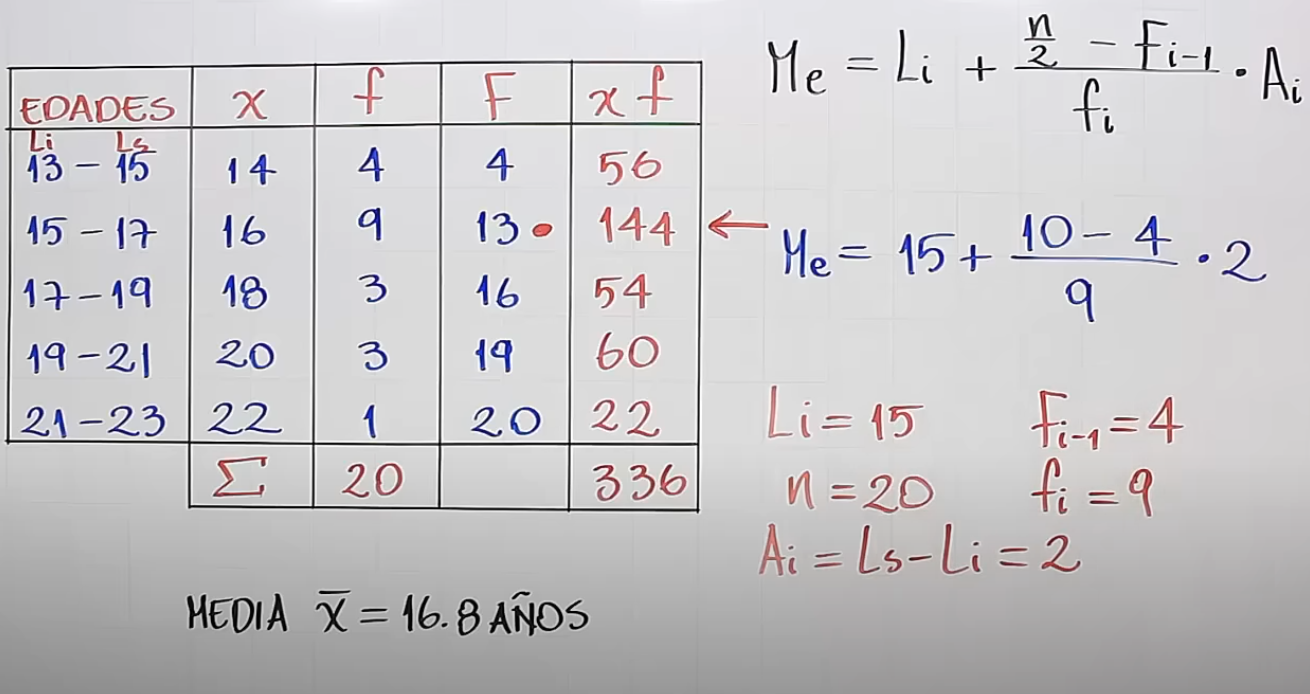 EDADES x f F x f
Li Ls
13 - 15 14 4 4 56
15 - 17 16 9 13 • 144 ←
17 - 19 18 3 16 54
19 - 21 20 3 19 60
21 - 23 22 1 20 22
Σ 20 336
MEDIA x̄ = 16.8 AÑOS
Me = Li + (n/2 - Fi-1)/fi · Ai
Me = 15 + (10 - 4)/9 · 2
Li = 15 Fi-1 = 4
n = 20 fi = 9
Ai = Ls - Li = 2